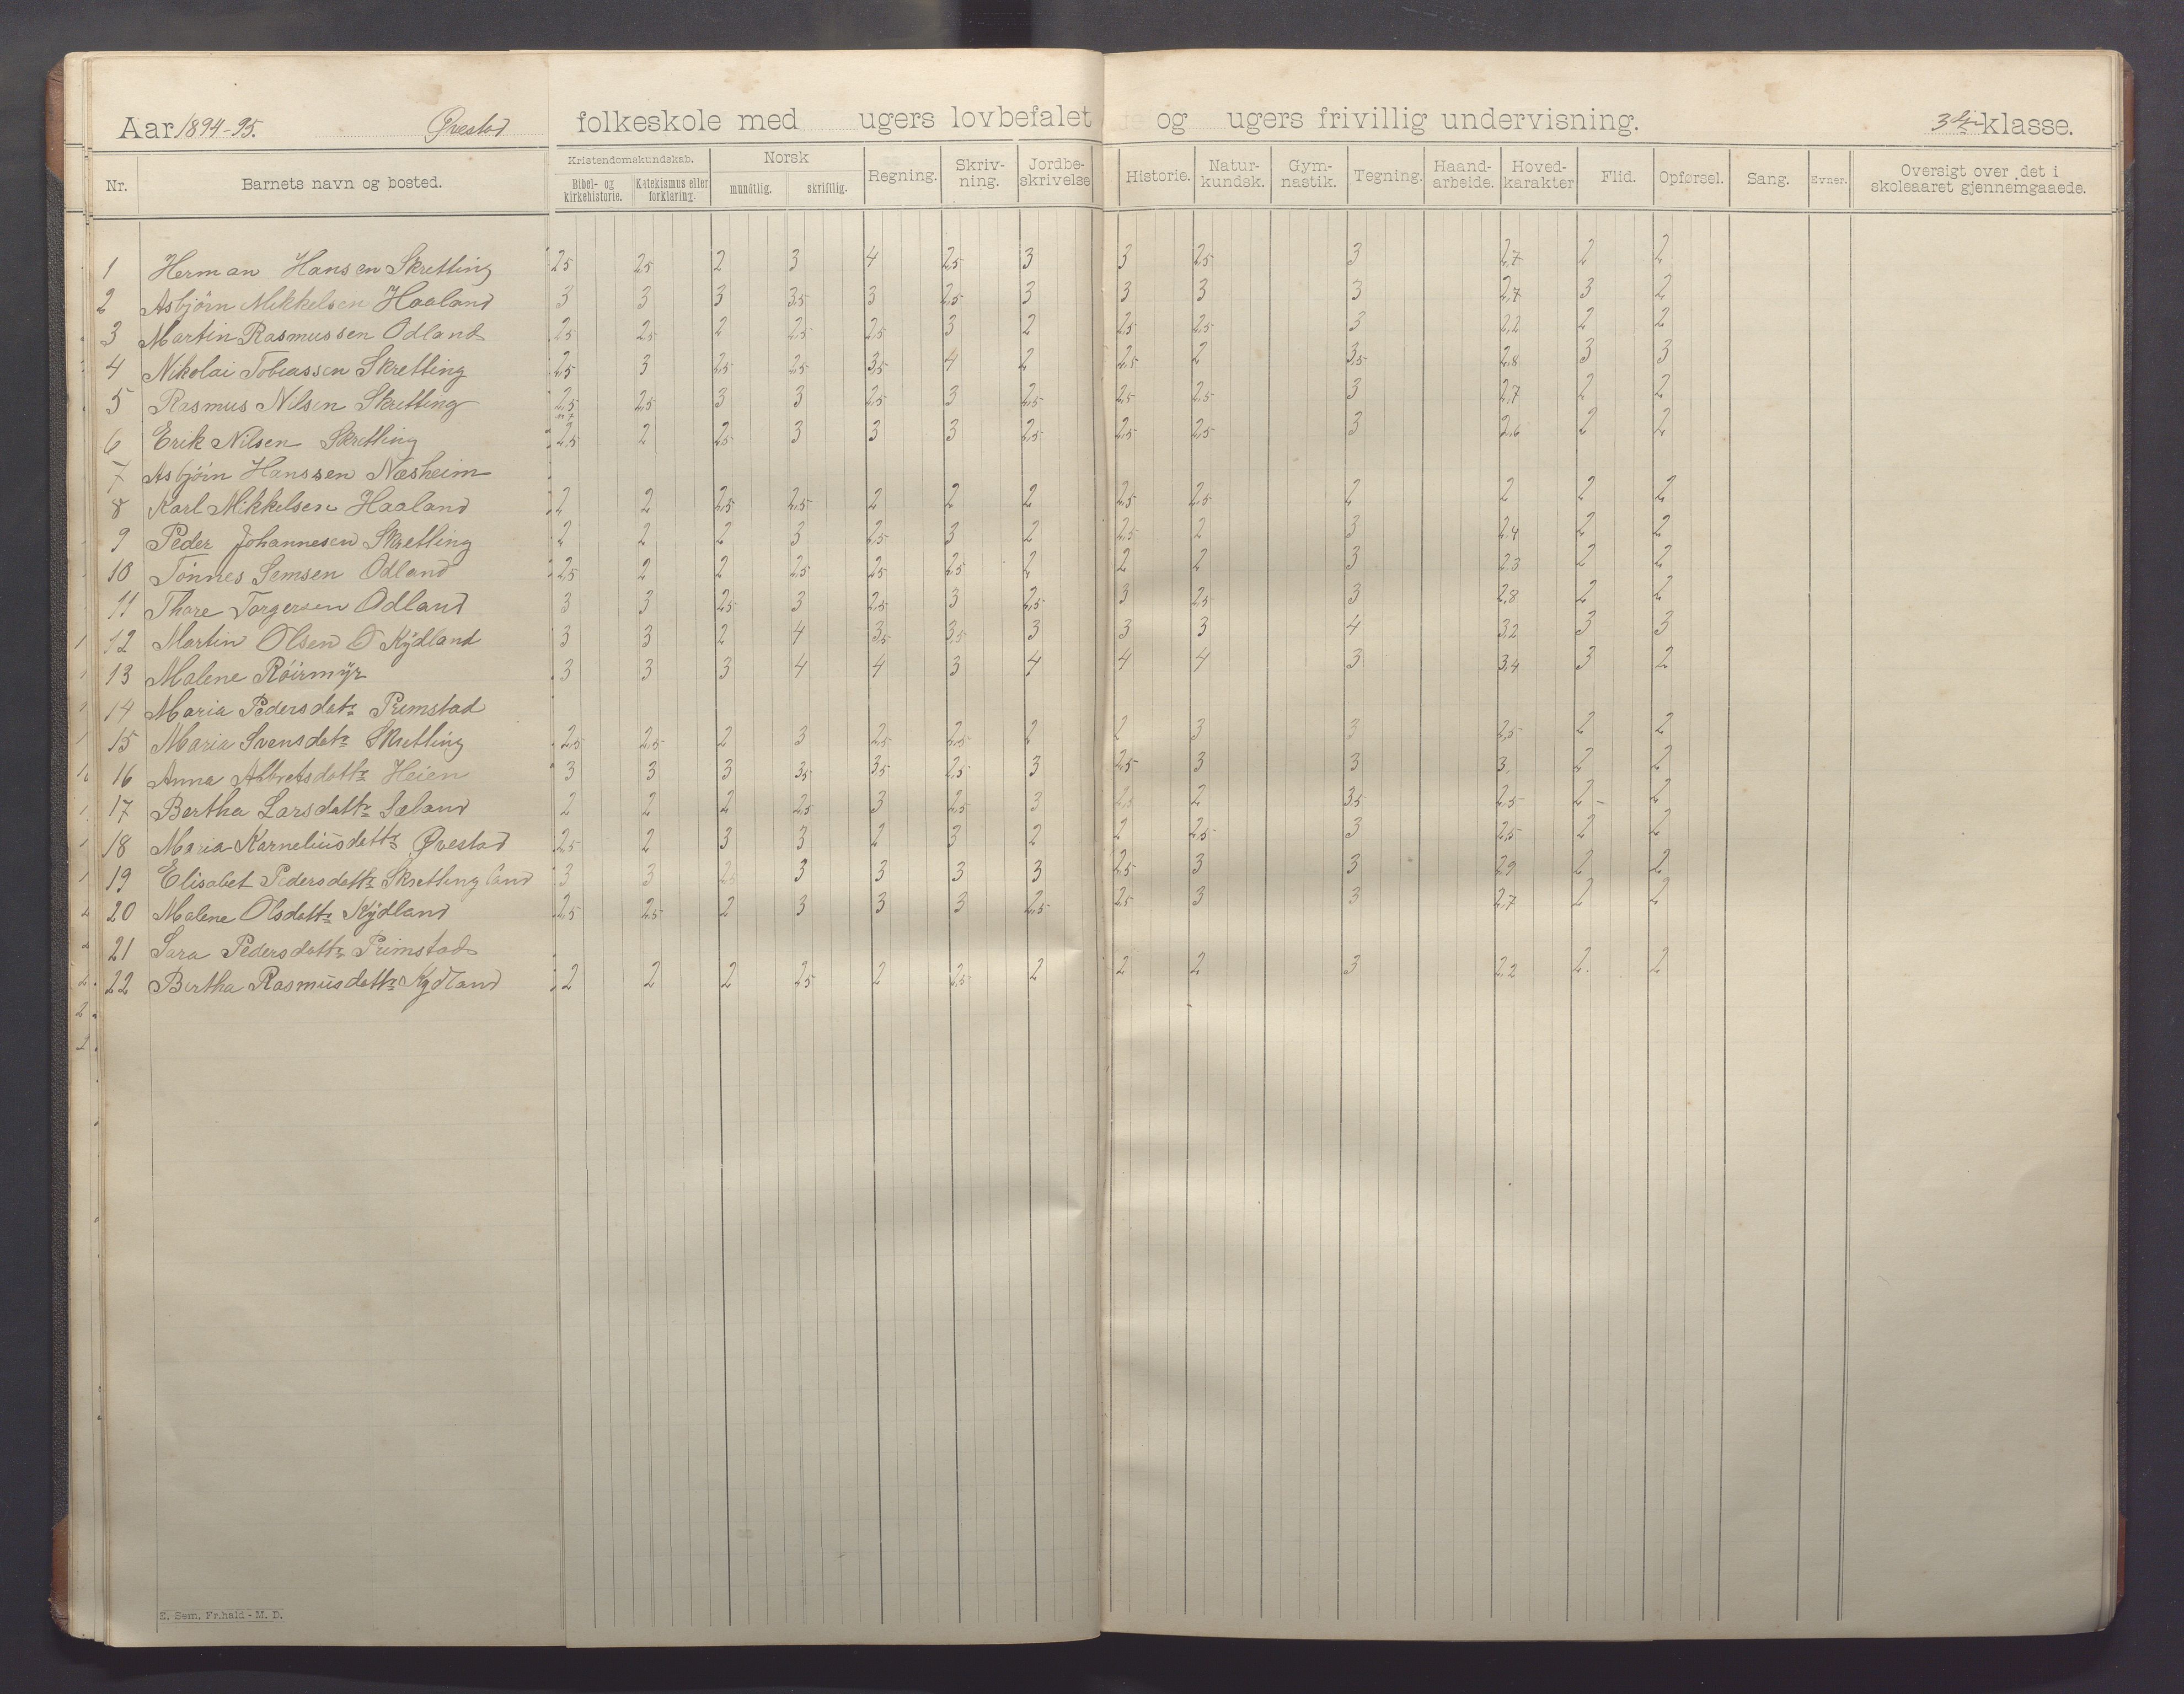 Aar 1894-95. Ørestad folkeskole med ugers lovbefalet og ugers frivillig undervisning. 3die klasse.
Nr. Barnets navn og bosted. Kristendomskundskab. Bibel- og kirkehistorie. Katekismus eller forklaring. Norsk mundtlig. skriftlig. Regning. Skriv-ning. Jordbe-skrivelse Historie. Natur-kundsk. Gym-nastik. Tegning. Haand-arbeide. Hoved-karakter Flid. Opførsel. Sang. Evner. Oversigt over det i skoleaaret gjennemgaaede.
1 Herman Hansen Skretting 2,5 2,5 2 3 4 2,5 3 3 2,5 3 2,7 2 2
2 Asbjörn Mikkelsen Haaland 3 3 3 3,5 3 2,5 3 3 3 3 2,7 3 2
3 Martin Rasmussen Odland 2,5 2,5 2 2,5 2,5 3 2 2,5 2,5 3 2,2 2 2
4 Nikolai Tobiassen Skretting 2,5 3 2,5 2,5 3,5 4 2 2,5 2 3,5 2,8 3 3
5 Rasmus Nilsen Skretting 2,5 2,5 3 3 2,5 3 2,5 2,5 2,5 3 2,7 2 2
6 Erik Nilsen Skretting 2,5 2 2,5 3 3 3 2,5 2,5 2,5 3 2,6 2 2
7 Asbjörn Hanssen Næsheim
8 Karl Mikkelsen Haaland 2 2 2,5 2,5 2 2 2 2,5 2,5 2 2 2 2
9 Peder Johannesen Skretting 2 2 2 3 2,5 3 2 2,5 2 3 2,4 2 2
10 Tönnes Semsen Odland 2,5 2 2 2,5 2,5 2,5 2 2 2 3 2,3 2 2
11 Thore Torgersen Odland 3 3 2,5 3 2,5 3 2,5 3 2,5 3 2,8 2 2
12 Martin Olsen Kÿdland 3 3 2 4 3,5 3,5 3 3 3 4 3,2 3 3
13 Malene Röirmÿr 3 3 3 4 4 3 4 4 4 3 3,4 3 2
14 Maria Pedersdatr Primstad
15 Maria Svensdatr Skretting 2,5 2,5 2 3 2,5 2,5 2 2 3 3 2,5 2 2
16 Anna Albretsdattr Heien 3 3 3 3,5 3,5 2,5 3 2,5 3 3 3 2 2
17 Bertha Larsdattr Sæland 2 2 2 2,5 3 2,5 3 2,5 2 3,5 2,5 2 2
18 Maria Karneliusdattr Ørestad 2,5 2 3 3 2 3 2 2 2,5 3 2,5 2 2
19 Elisabet Pedersdattr Skrettingland 3 3 2,5 3 3 3 3 2,5 3 3 2,9 2 2
20 Malene Olsdattr Kÿdland 2,5 2,5 2 3 3 3 2,5 2,5 3 3 2,7 2 2
21 Sara Pedersdattr Primstad
22 Bertha Rasmusdattr Kydland 2 2 2 2,5 2 2,5 2 2 2 3 2,2 2 2
E. Sem. Fr.hald - M. D.